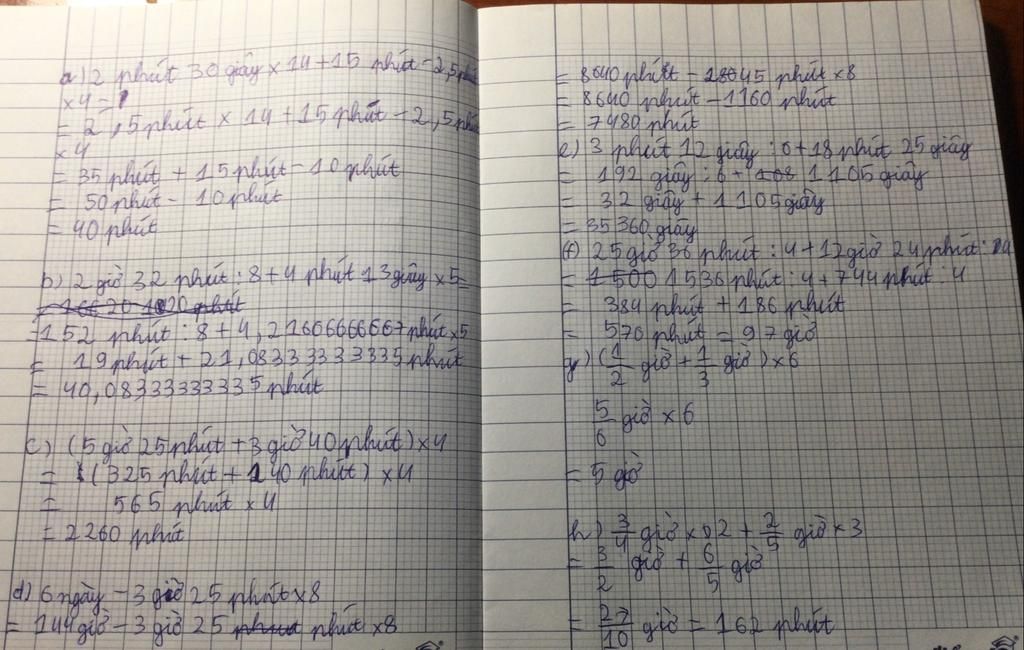 a) 2 phút 30 giây x 14 + 15 phút - 2,5 phút
x 4 =
= 2,5 phút x 14 + 15 phút - 2,5 phút
x 4
= 35 phút + 15 phút - 10 phút
= 50 phút - 10 phút
= 40 phút
b) 2 giờ 32 phút : 8 + 4 phút 13 giây x 5 =
= 152 phút : 8 + 4,2166666667 phút x 5
= 19 phút + 21,08333333335 phút
= 40,08333333335 phút
c) (5 giờ 25 phút + 3 giờ 40 phút) x 4
= (325 phút + 240 phút) x 4
= 565 phút x 4
= 2260 phút
d) 6 ngày - 3 giờ 25 phút x 8
= 144 giờ - 3 giờ 25 phút x 8
= 8640 phút - 145 phút x 8
= 8640 phút - 1160 phút
= 7480 phút
e) 3 phút 12 giây : 6 + 18 phút 25 giây
= 192 giây : 6 + 1105 giây
= 32 giây + 1105 giây
= 35360 giây
f) 25 giờ 36 phút : 4 + 12 giờ 24 phút : 4
= 1536 phút : 4 + 744 phút : 4
= 384 phút + 186 phút
= 570 phút = 97 giờ
g) (1/2 giờ + 1/3 giờ) x 6
5/6 giờ x 6
= 5 giờ
h) 3/4 giờ x 2 + 2/5 giờ x 3
= 3/2 giờ + 6/5 giờ
= 27/10 giờ = 162 phút